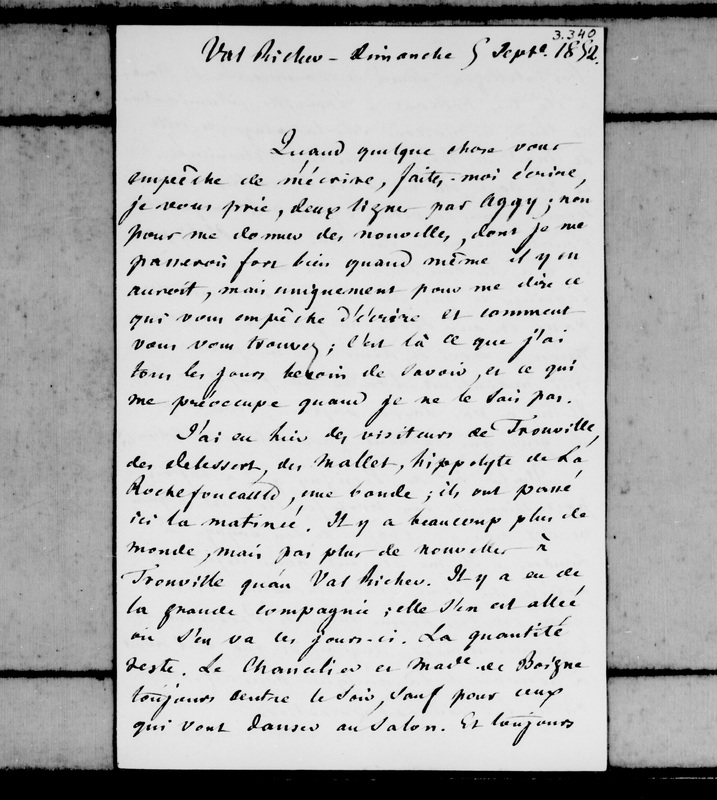 3.340
Val Richer - Dimanche 5 Septe. 1852.
Quand quelque chose vous
empêche de m'écrire, faites-moi écrire,
je vous prie, deux lignes par Aggy ; non
pour me donner des nouvelles, dont je me
passerois fort bien quand même il y en
auroit, mais uniquement pour me dire ce
qui vous empêche d'écrire et comment
vous vous trouvez ; c'est là ce que j'ai
tous les jours besoin de savoir, et ce qui
me préoccupe quand je ne le sais pas.
J'ai eu hier des visiteurs de Trouville,
des Delessert, des Mallet, hippolyte de La
Rochefoucauld, une bande ; ils ont passé
ici la matinée. Il y a beaucoup plus de
monde, mais pas plus de nouvelles à
Trouville qu'au Val Richer. Il y a eu de
la grande compagnie ; elle s'en est allée
ou s'en va ces jours-ci. La quantité
reste. Le Chancelier et Made de Boigne
toujours centre le soir, sauf pour ceux
qui vont danser au Salon. Et toujours